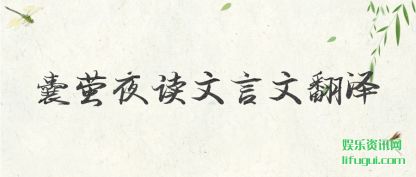 囊萤夜读文言文翻译
娱乐资讯网
lifugui.com